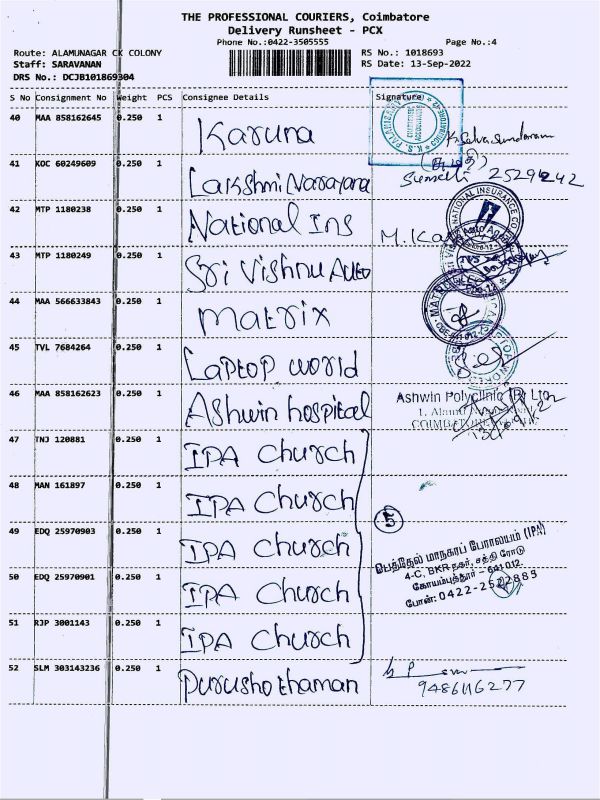 THE PROFESSIONAL COURIERS, Coimbatore
Delivery Runsheet - PCX
Phone No.:0422-3505555 Page No.:4
Route: ALAMUNAGAR CK COLONY RS No.: 1018693
Staff: SARAVANAN RS Date: 13-Sep-2022
DRS No.: DCJB101869304
S No Consignment No Weight PCS Consignee Details Signature
40 MAA 858162645 0.250 1 Karuna
K.Selva Sundaram
41 KOC 60249609 0.250 1 Lakshmi Narayana
25291242
42 MTP 1180238 0.250 1 National Ins
NATIONAL INSURANCE CO
43 MTP 1180249 0.250 1 Sri Vishnu Auto
44 MAA 566633843 0.250 1 Matrix
45 TVL 7684264 0.250 1 Laptop world
46 MAA 858162623 0.250 1 Ashwin hospital
Ashwin Polyclinic (P) Ltd
47 TNJ 120881 0.250 1 IPA Church
48 MAN 161897 0.250 1 IPA Church
5
49 EDQ 25970903 0.250 1 IPA Church
பெத்தேல் மாநகரப் பேராலயம் (IPA)
4-C, BKR நகர், சத்தி ரோடு
50 EDQ 25970901 0.250 1 IPA Church
கோயம்புத்தூர் - 641 012.
போன்: 0422-2522889
51 RJP 3001143 0.250 1 IPA Church
52 SLM 303143236 0.250 1 Purushothaman
9486116277